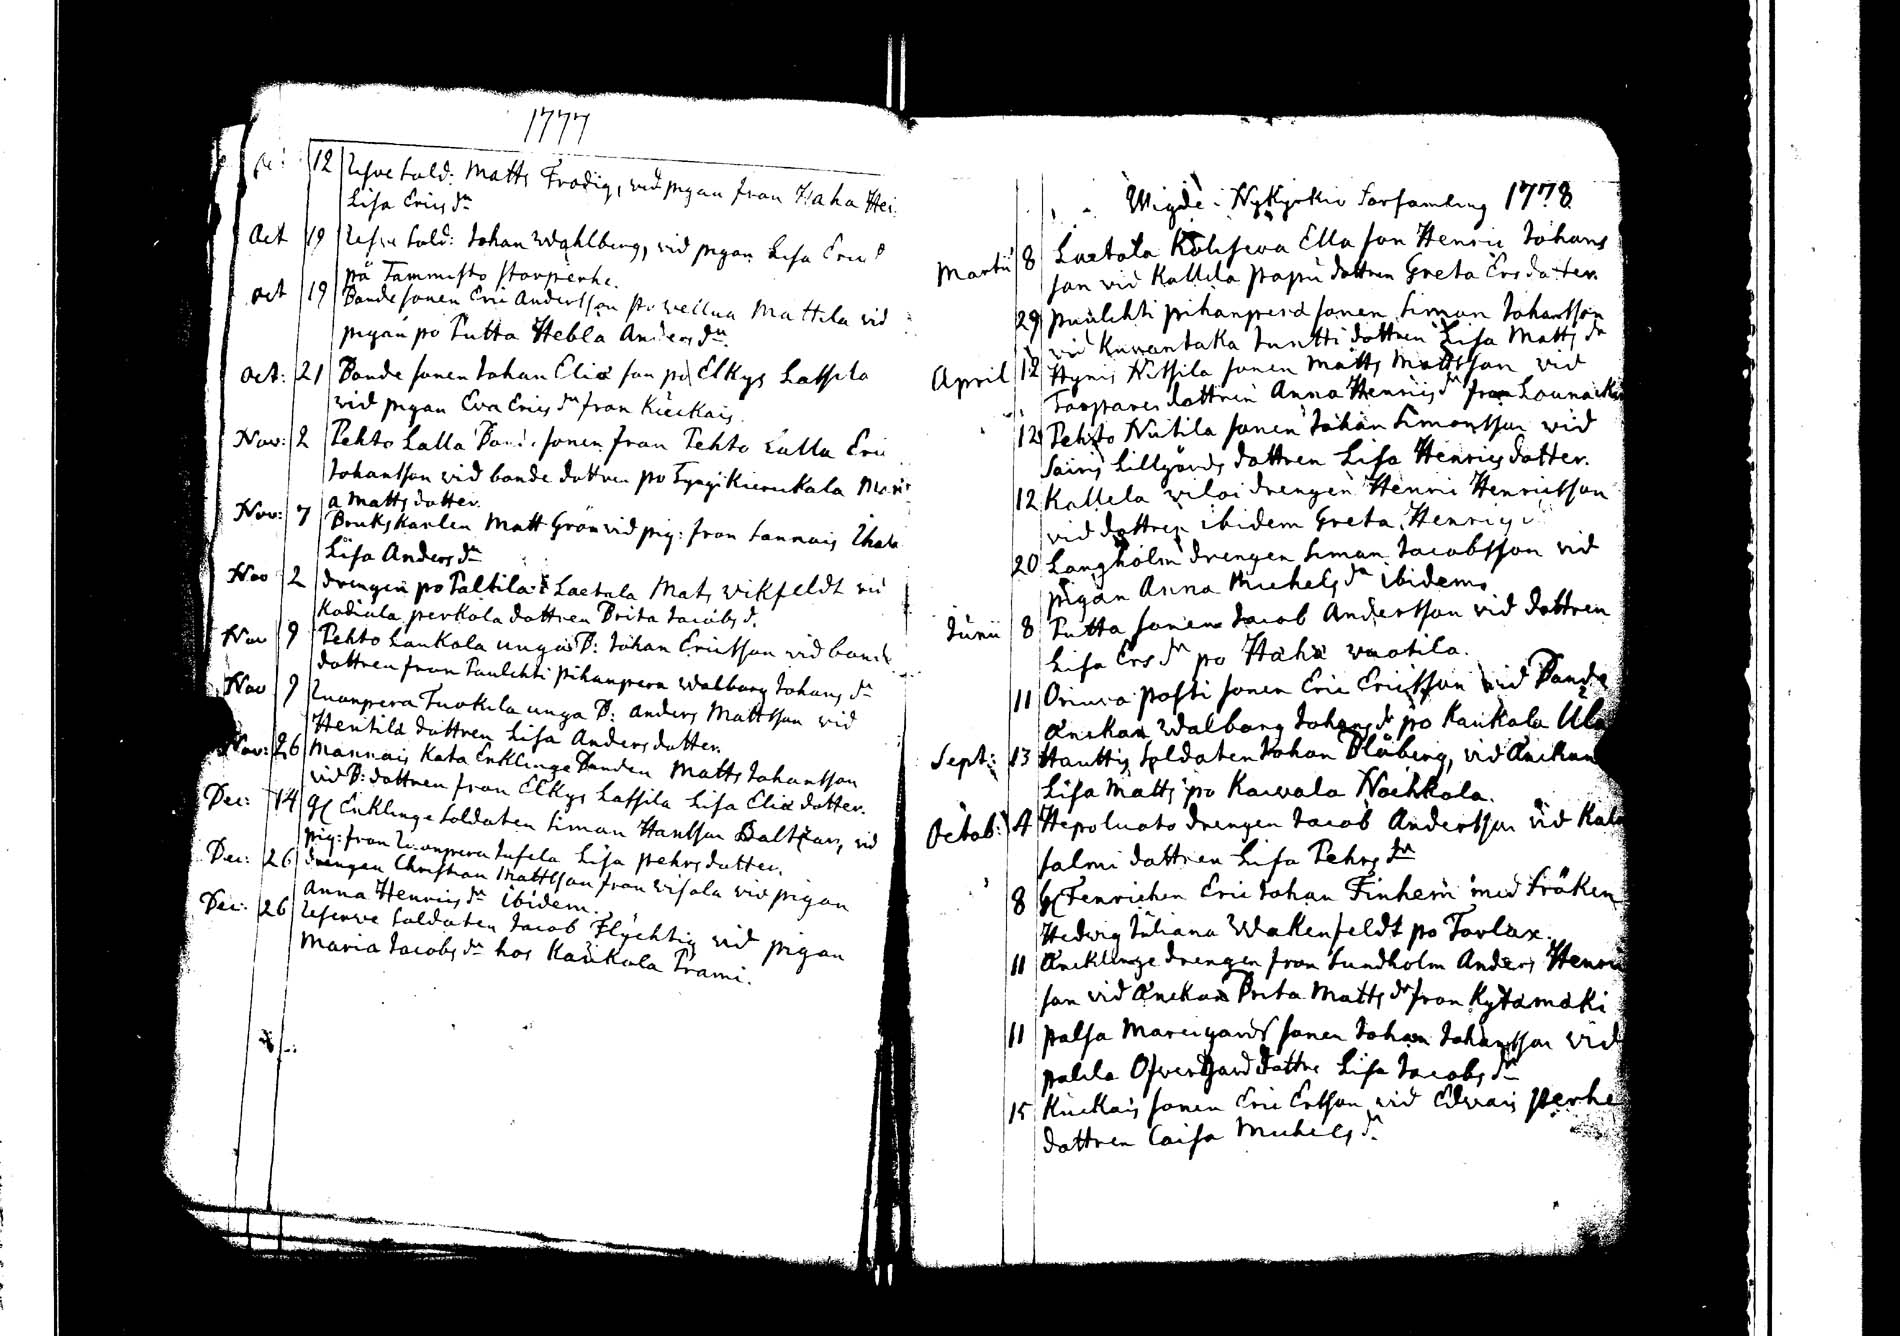 1777
12 Resve Sold: Matts Frodig, vid pigan fran Haha Hei
Lisa Erics dr
Oct 19 Resve Sold: Johan Wahlberg, vid pigan Lisa Eric
på Tammisto Storperhe.
oct 19 Bonde sonen Eric Andersson po weilua Mattila vid
pigan po Putta Hebla Anders dr.
oct: 21 Bonde sonen Johan Elias son po Elkys Lassila
vid pigan Eva Erics dr fran Kieckais.
Nov: 2 Pehto Lalla Bond sonen fran Pehto Lalla Eric
Johansson vid bonde dottren po Kierukala Mari
a Matts dotter.
Nov: 7 Brukskarlen Matt Grön vid pig: fran Lannais
Lisa Anders dr
Nov 2 drengen po Paltila i Laetala Mats Wikfeldt vid
Kodiala perkola dottren Brita Jacobs d.
Nov 9 Pehto Laukola unga B: Johan Ericsson vid bonde
dottren fran Paulehti pihanpera Walborg Johans dr
Nov 9 Luanpera Tuokila unga B: anders Mattsson vid
Hentilä dottren Lisa Anders dotter.
Nov: 26 Mannais Kata Enklinge Bonden Matts Johansson
vid B: dottren fran Elkys Lassila Lisa Elias dotter.
Dec: 14 Enklinge Soldaten Simon Hansson Baltzar, vid
pig: fran Luonpera Jusela Lisa Pehrs dotter.
Dec: 26 drengen Christian Mattsson fran Visala vid pigan
Anna Henrics dr ibidem.
Dec: 26 Reserve Soldaten Jacob Flychtig vid pigan
Maria Jacobs dr hos Kaukola Prami.
Wigde i Nykyrkio Forsamling 1778
Martii 8 Laetala Ella son Henric Johans
son vid Kallela papu dottren Greta Ers dotter
29 Paulehti pihanpera sonen Simon Johansson
vid Kuvantaka Juntti dottren Lisa Matts dr
April 12 Hynis Nissila sonen Matts Mattsson vid
Torpares dottren Anna Henrics dr fran
12 Pehto Nutila sonen Johan Simonsson vid
Sairis Lillgårds dottren Lisa Henrics dotter.
12 Kallela viloi drengen Henric Henricsson
vid dottren ibidem Greta Henrics
20 Langholm drengen Simon Jacobsson vid
pigan Anna Michels dr ibidem.
Junii 8 Putta sonen Jacob Andersson vid dottren
Lisa Ers dr po Haha vuotila.
11 Posti sonen Eric Ericsson vid Bonde
änckan Walborg Johans dr po Kaukola
Sept: 13 Hauttis Soldaten Johan Blåberg, vid Änckan
Lisa Matts po Kaivala Noihkala.
Octob: 4 Hepoluoto drengen Jacob Andersson vid Kala
salmi dottren Lisa Pehrs dr
8 Fenrichen Eric Johan Finhem med Fröken
Hedvig Juliana Wakenfeldt po Torlax.
11 Änklinge drengen fran Sundholm Anders Henric
son vid Änckan Brita Matts dr fran Kytämäki
11 palsa Marcigards sonen Johan Johansson vid
palila Öfvergard dottre Lisa Jacobs dr
15 Kieckais sonen Eric Ersson vid Edvais perhe
dottren Caisa Michels dr